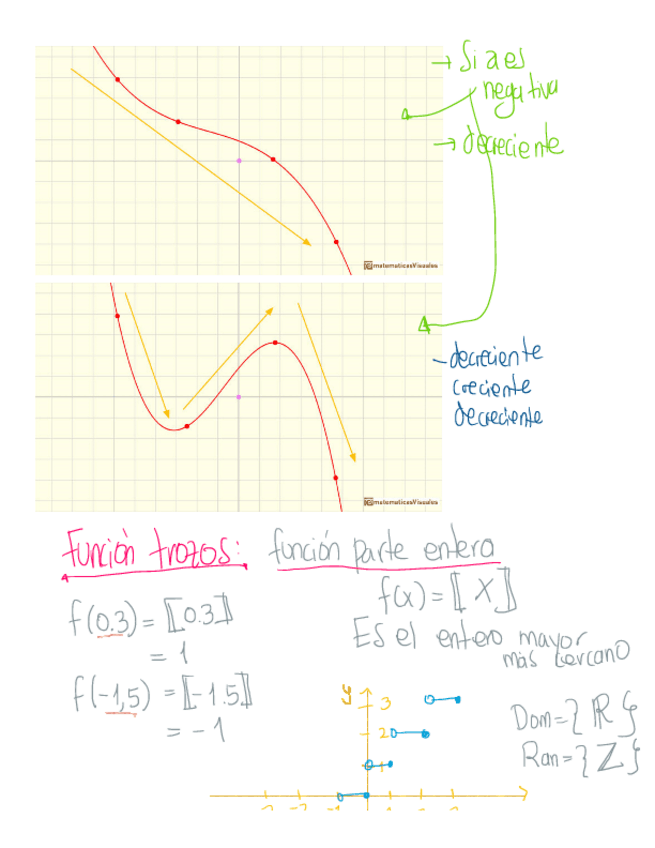 → Si a es
negativa
→ decreciente
matematicasVisuales
- decreciente
creciente
decreciente
matematicasVisuales
Función trozos: función parte entera
f(x) = ⟦ X ⟧
f(0.3) = ⟦0.3⟧
= 1
Es el entero mayor
más cercano
f(-1,5) = ⟦-1.5⟧
= -1
y
3
2
1
Dom = { ℝ }
Ran = { ℤ }